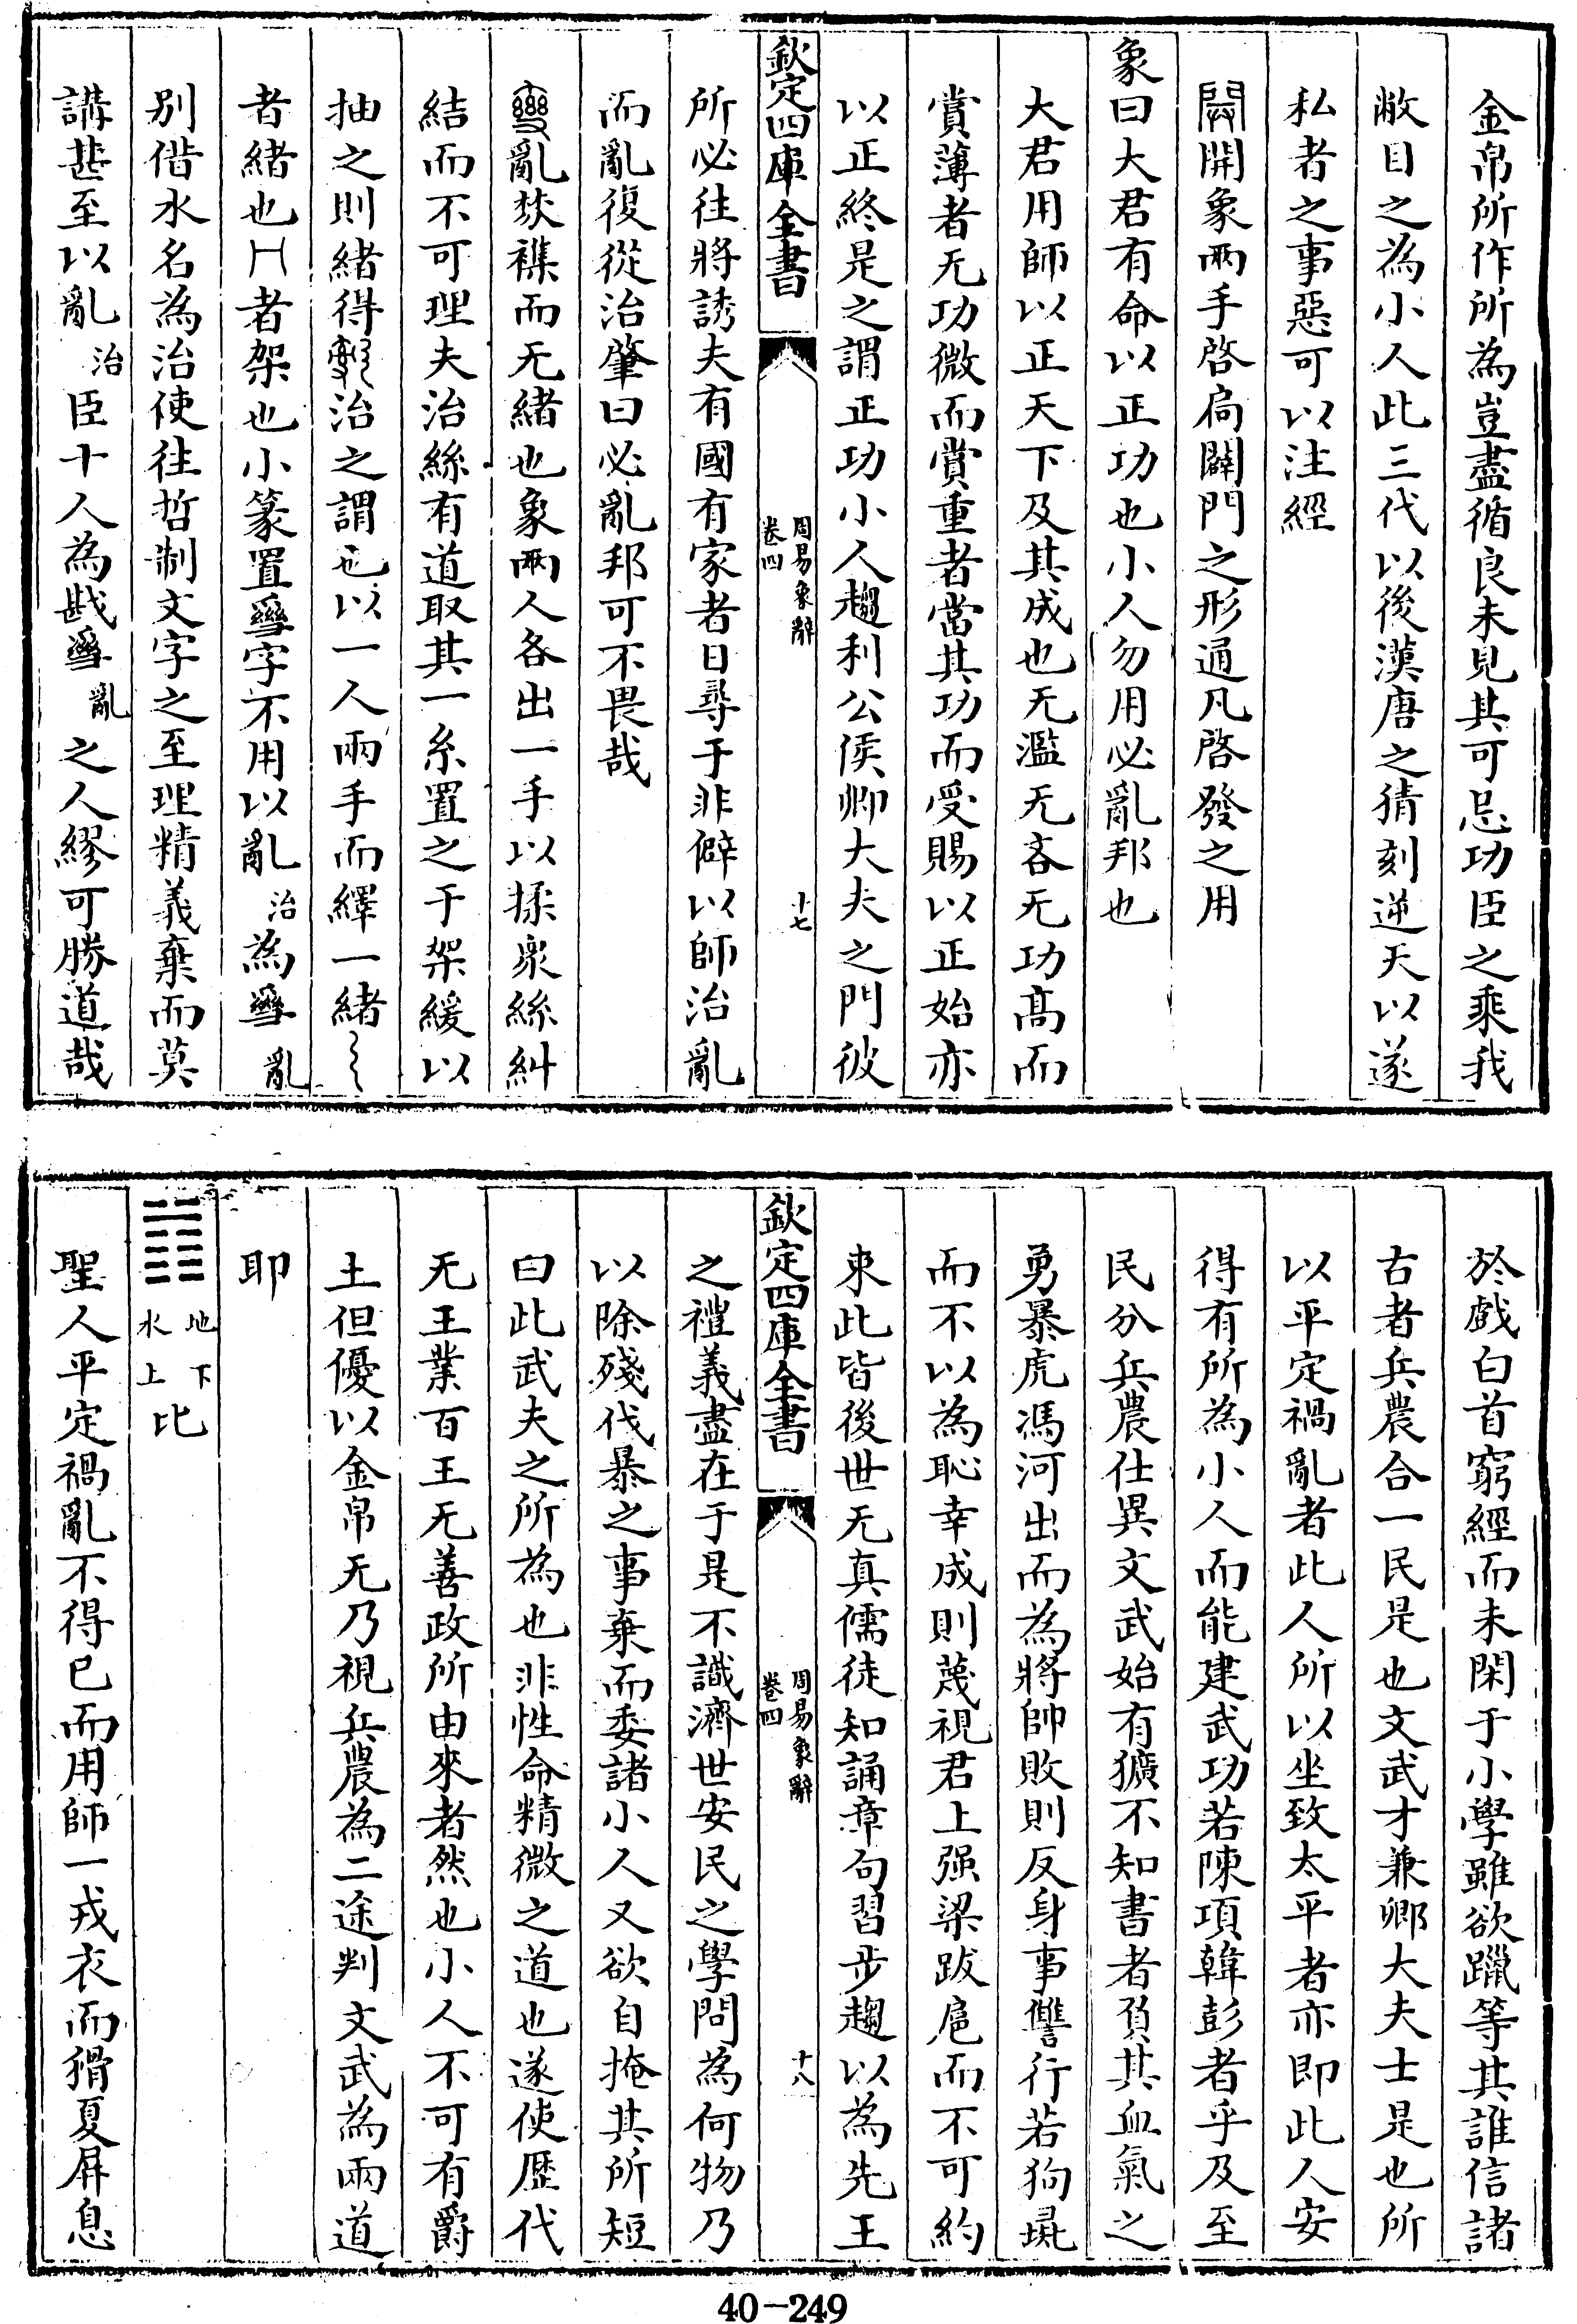 金帛所作所為豈盡循良未見其可忌功臣之乘我
敝目之為小人此三代以後漢唐之猜刻逆天以遂
私者之事惡可以注經
開象兩手啓扃闢門之形通凡啓發之用
象曰大君有命以正功也小人勿用必亂邦也
大君用師以正天下及其成也无濫无吝无功高而
賞薄者无功微而賞重者當其功而受賜以正始亦
以正終是之謂正功小人趨利公侯卿大夫之門彼
欽定四庫全書
周易象辭
卷四
十七
所必往將誘夫有國有家者日尋于非僻以師治亂
而亂復從治肇曰必亂邦可不畏哉
亂棼襍而无緒也象兩人各出一手以揉衆絲糾
結而不可理夫治絲有道取其一糸置之于架緩以
抽之則緒得治之謂也以一人兩手而繹一緒
者緒也冂者架也小篆置字不用以亂治為亂
別借水名為治使往哲制文字之至理精義棄而莫
講甚至以亂治臣十人為戡亂之人繆可勝道哉
於戲白首窮經而未閑于小學雖欲躐等其誰信諸
古者兵農合一民是也文武才兼卿大夫士是也所
以平定禍亂者此人所以坐致太平者亦即此人安
得有所為小人而能建武功若陳項韓彭者乎及至
民分兵農仕異文武始有獷不知書者負其血氣之
勇暴虎馮河出而為將帥敗則反身事讐行若狗彘
而不以為恥幸成則蔑視君上强梁跋扈而不可約
束此皆後世无真儒徒知誦章句習步趨以為先王
欽定四庫全書
周易象辭
卷四
十八
之禮義盡在于是不識濟世安民之學問為何物乃
以除殘伐暴之事棄而委諸小人又欲自掩其所短
曰此武夫之所為也非性命精微之道也遂使歴代
无王業百王无善政所由來者然也小人不可有爵
土但優以金帛无乃視兵農為二途判文武為兩道
耶
䷇地下水上比
聖人平定禍亂不得已而用師一戎衣而猾夏屏息
40-249